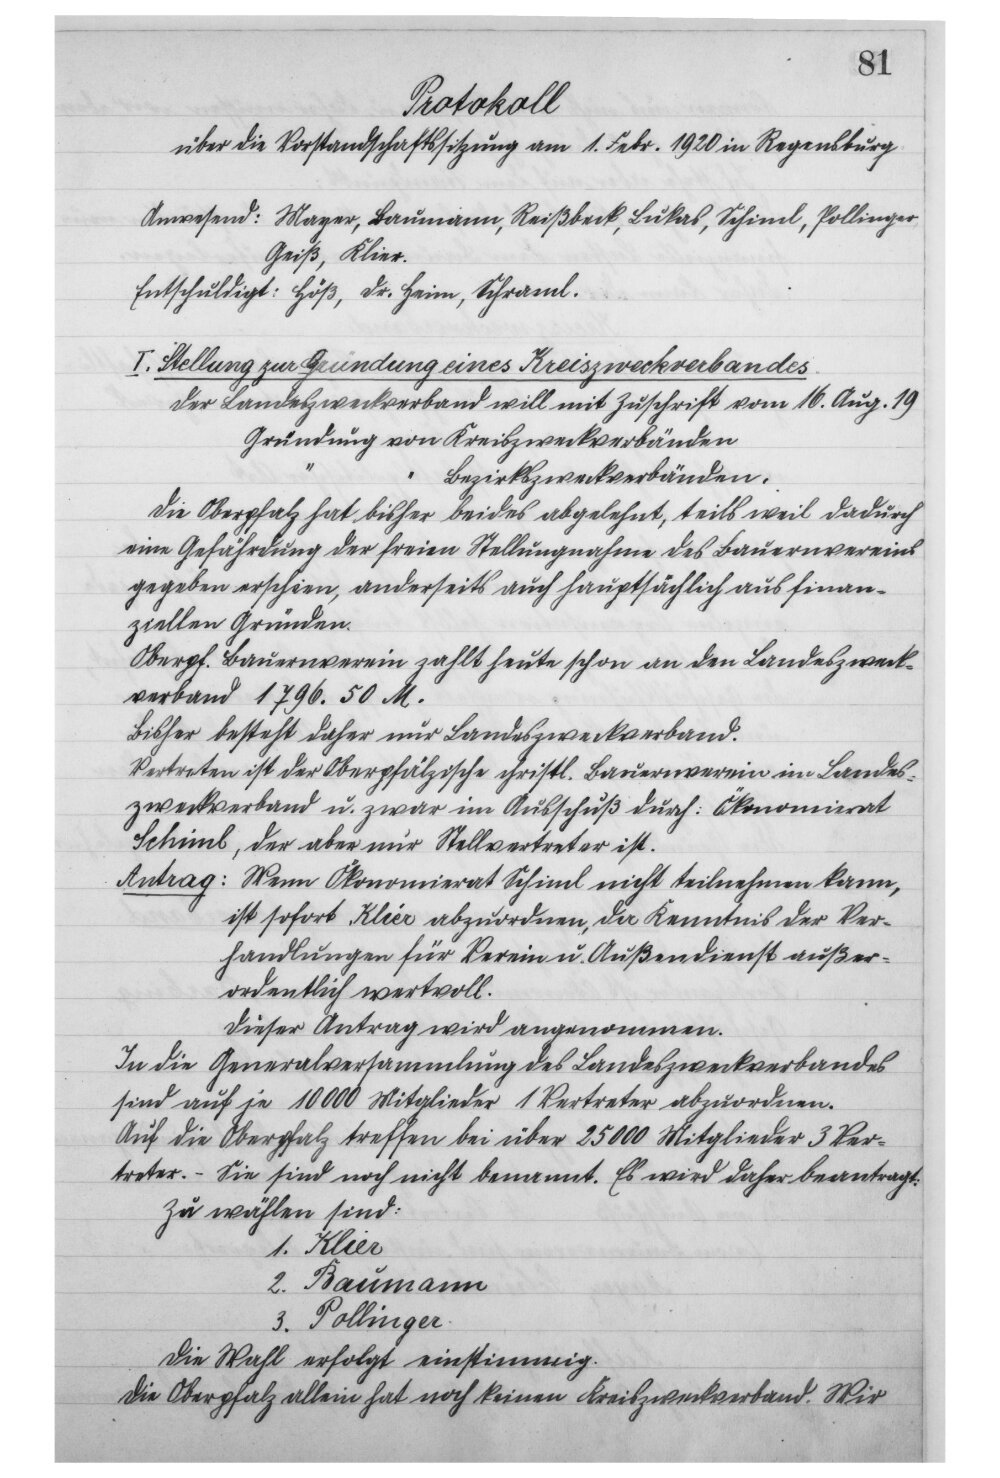 81
Protokoll
über die Vorstandschaftssitzung am 1. Febr. 1920 in Regensburg
Anwesend: Mayer, Baumann, Reißbeck, Lukas, Schiml, Pollinger
Geiß, Klier.
Entschuldigt: Höß, Dr. Heim, Schraml.
I. Stellung zur Gründung eines Kreiszweckverbandes.
Der Landeszweckverband will mit Zuschrift vom 16. Aug. 19
Gründung von Kreiszweckverbänden
" " Bezirkszweckverbänden.
Die Oberpfalz hat bisher beides abgelehnt, teils weil dadurch
eine Gefährdung der freien Stellungnahme des Bauernvereins
gegeben erschien, anderseits auch hauptsächlich aus finan-
ziellen Gründen.
Oberpf. Bauernverein zahlt heute schon an den Landeszweck-
verband 1796.50 M.
Bisher besteht daher nur Landeszweckverband.
Vertreten ist der Oberpfälzische christl. Bauernverein im Landes-
zweckverband u. zwar im Ausschuß durch: Ökonomierat
Schiml, der aber nur Stellvertreter ist.
Antrag: Wenn Ökonomierat Schiml nicht teilnehmen kann,
ist sofort Klier abzuordnen, da Kenntnis der Ver-
handlungen für Verein u. Außendienst außer-
ordentlich wertvoll.
Dieser Antrag wird angenommen.
In die Generalversammlung des Landeszweckverbandes
sind auf je 10000 Mitglieder 1 Vertreter abzuordnen.
Auf die Oberpfalz treffen bei über 25000 Mitglieder 3 Ver-
treter. - Sie sind noch nicht benannt. Es wird daher beantragt:
Zu wählen sind:
1. Klier
2. Baumann
3. Pollinger.
Die Wahl erfolgt einstimmig.
Die Oberpfalz allein hat noch keinen Kreiszweckverband. Wir